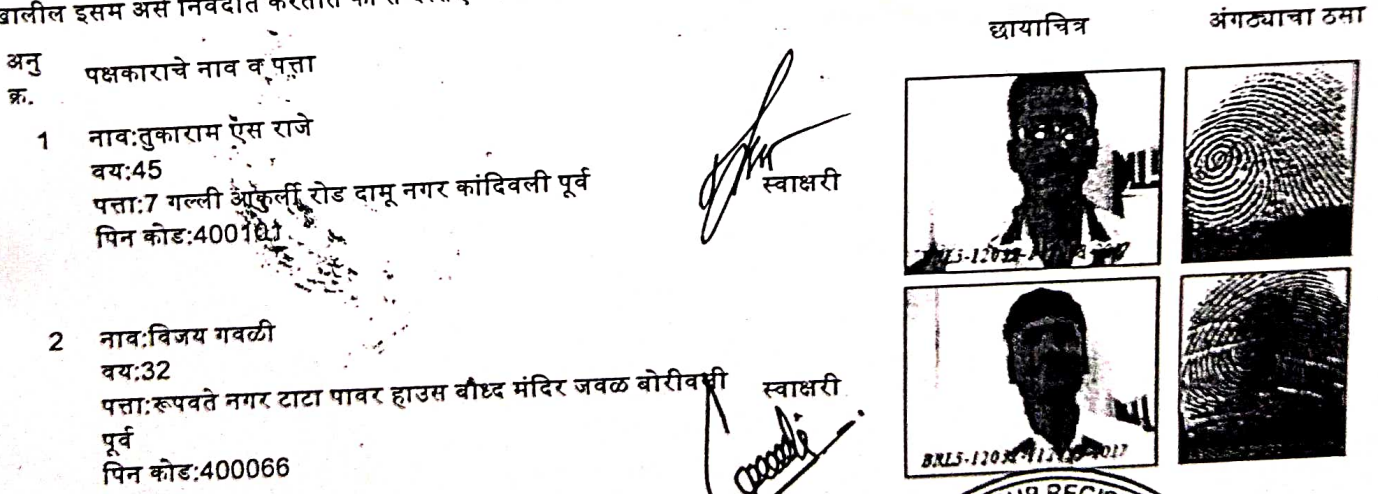 खालील इसम असे निवेदीत करतात की
छायाचित्र अंगठ्याचा ठसा
अनु क्र. पक्षकाराचे नाव व पत्ता
1 नाव:तुकाराम ऍस राजे
वय:45
पत्ता:7 गल्ली आकुर्ली रोड दामू नगर कांदिवली पूर्व
पिन कोड:400101
स्वाक्षरी
2 नाव:विजय गवळी
वय:32
पत्ता:रूपवते नगर टाटा पावर हाउस बौध्द मंदिर जवळ बोरीवली
पूर्व
पिन कोड:400066
स्वाक्षरी